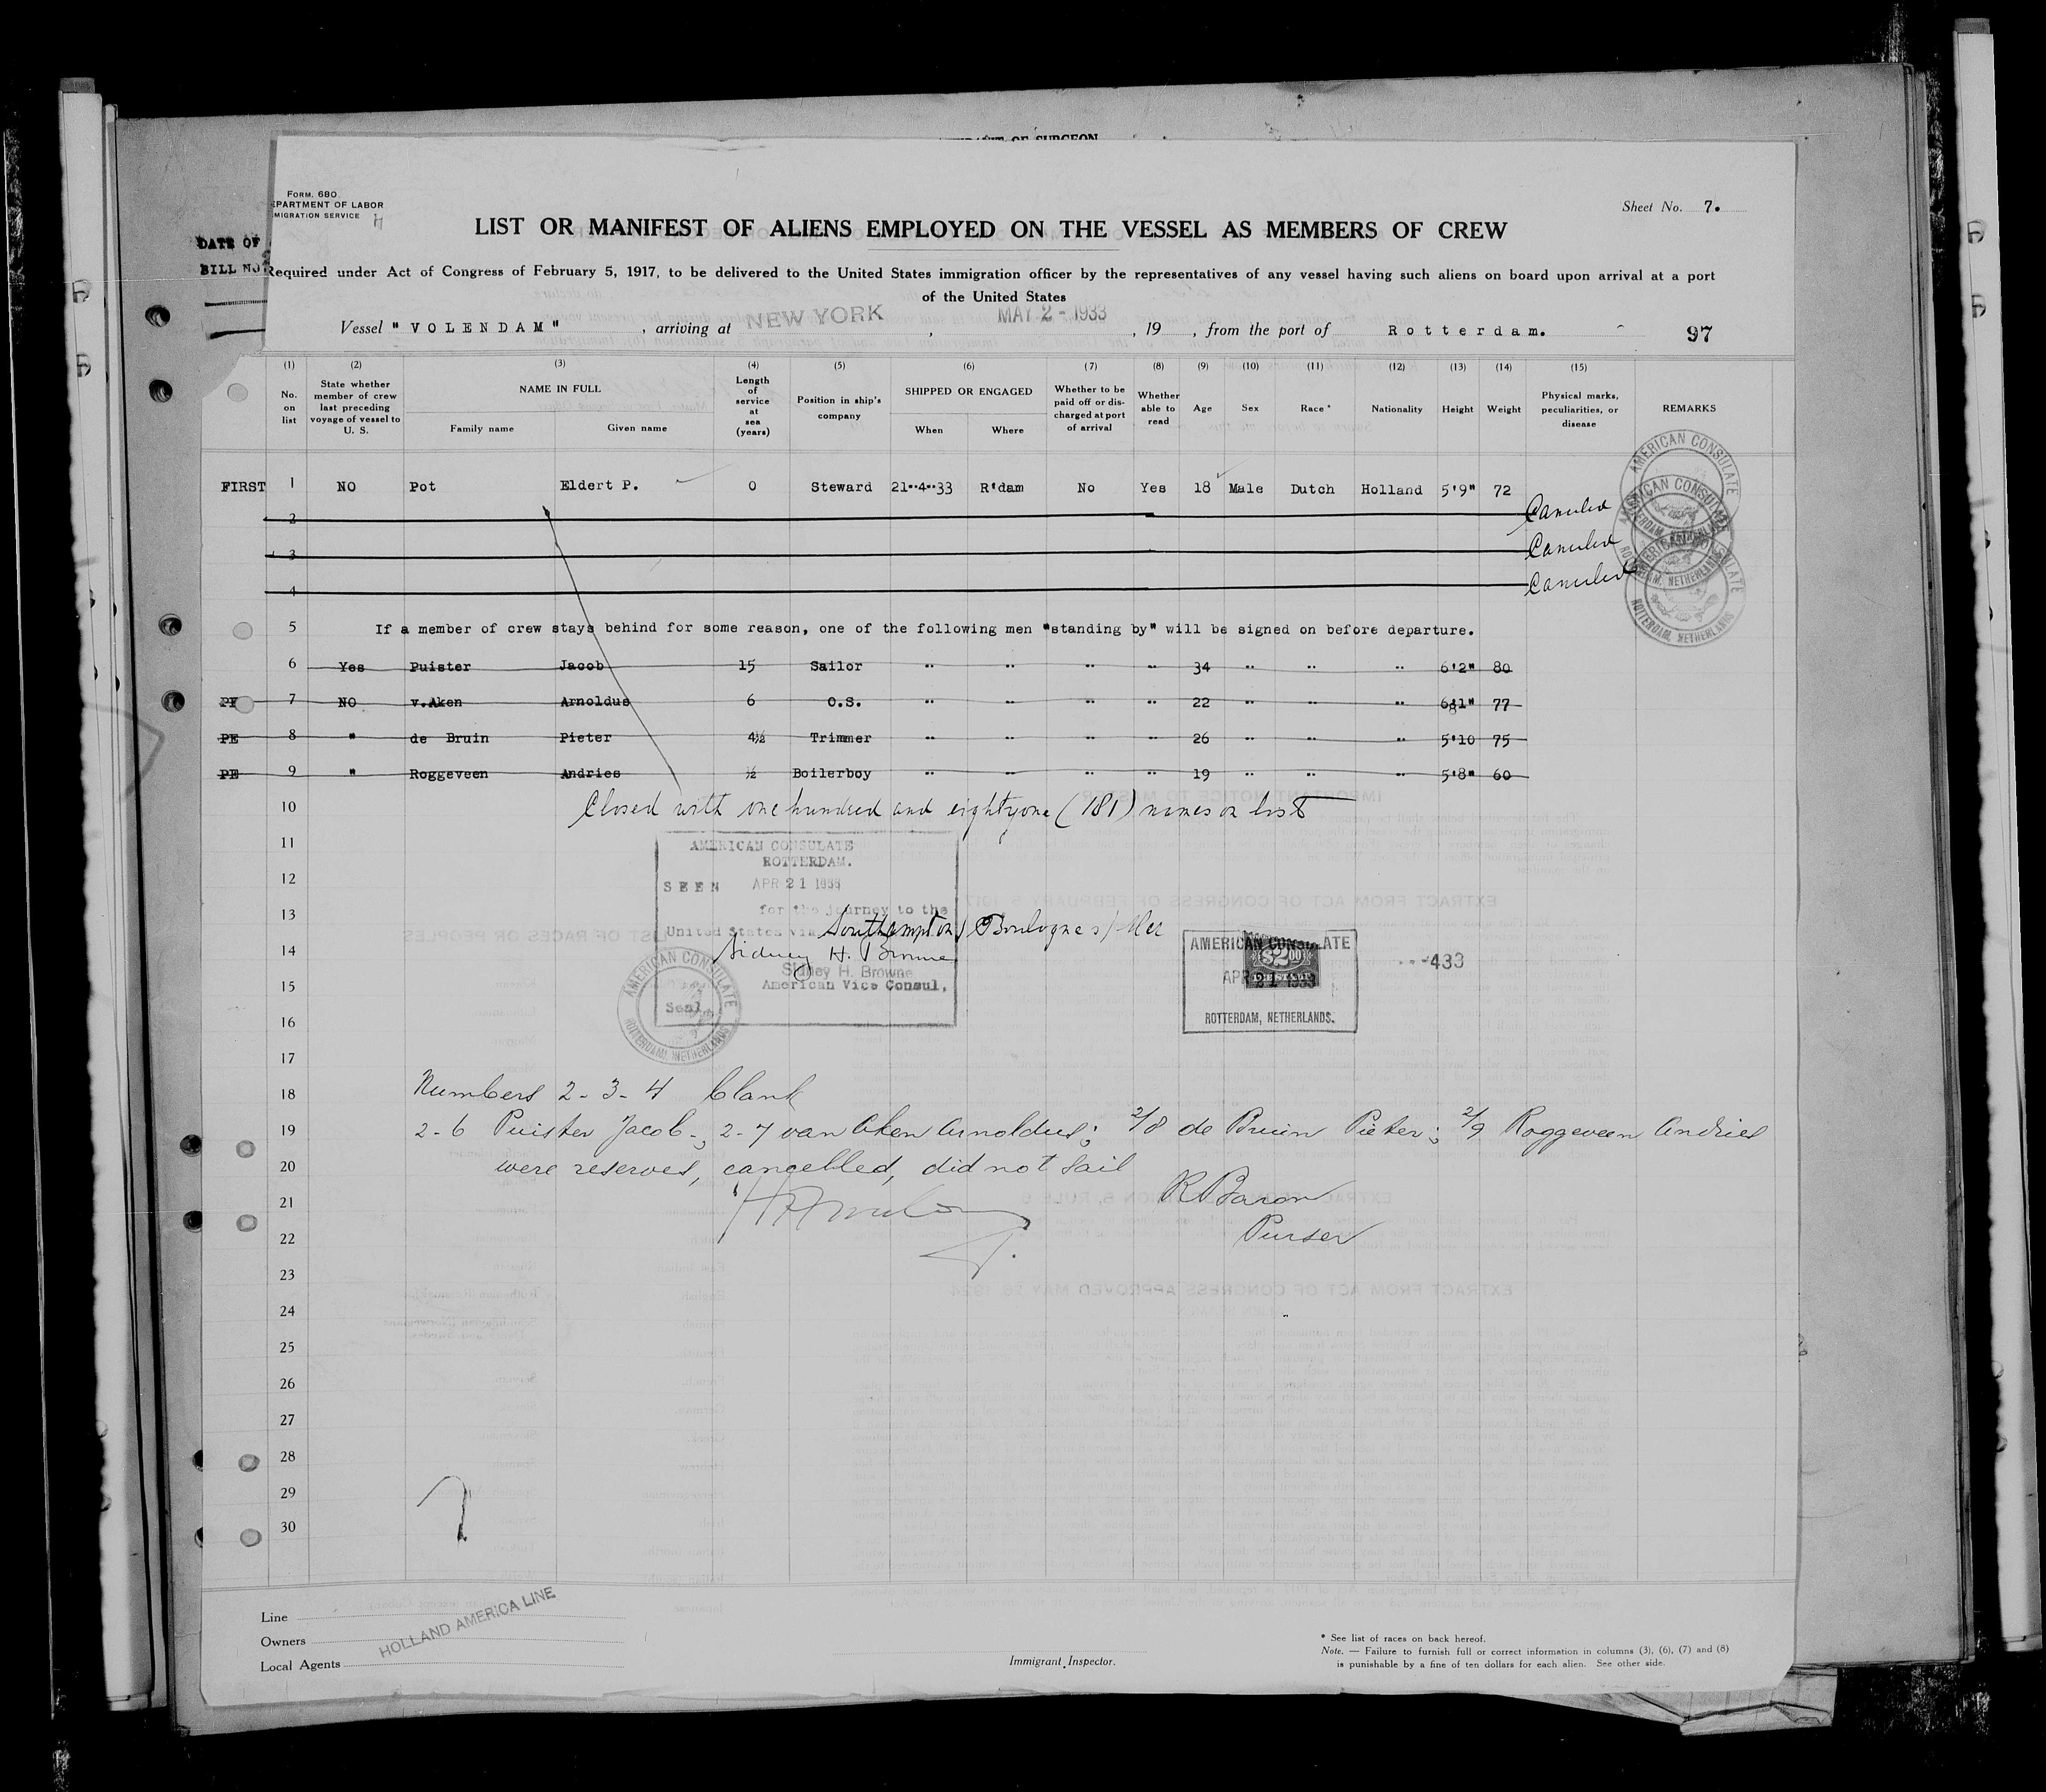 Form. 680
DEPARTMENT OF LABOR
IMMIGRATION SERVICE
Sheet No. 7.
DATE OF
BILL NO
LIST OR MANIFEST OF ALIENS EMPLOYED ON THE VESSEL AS MEMBERS OF CREW
Required under Act of Congress of February 5, 1917, to be delivered to the United States immigration officer by the representatives of any vessel having such aliens on board upon arrival at a port
of the United States
Vessel "VOLENDAM", arriving at NEW YORK, MAY 2 - 1933, 19 , from the port of Rotterdam. 97
(1) (2) (3) (4) (5) (6) (7) (8) (9) (10) (11) (12) (13) (14) (15)
No. on list | State whether member of crew last preceding voyage of vessel to U. S. | NAME IN FULL Family name Given name | Length of service at sea (years) | Position in ship's company | SHIPPED OR ENGAGED When Where | Whether to be paid off or discharged at port of arrival | Whether able to read | Age | Sex | Race * | Nationality | Height | Weight | Physical marks, peculiarities, or disease | REMARKS
FIRST 1 NO Pot Eldert P. 0 Steward 21-4-33 R'dam No Yes 18 Male Dutch Holland 5'9" 72
2 Canceled
3 Canceled
4 Canceled
AMERICAN CONSULATE
ROTTERDAM, NETHERLANDS
5 If a member of crew stays behind for some reason, one of the following men "standing by" will be signed on before departure.
6 Yes Puister Jacob 15 Sailor " " " " 34 " " " 6'2" 80
PE 7 NO v.Aken Arnoldus 6 O.S. " " " " 22 " " " 1" 77
PE 8 " de Bruin Pieter 4½ Trimmer " " " " 26 " " " 5'10 75
PE 9 " Roggeveen Andries ½ Boilerboy " " " " 19 " " " 5'8" 60
10 Closed with one hundred and eightyone (181) names on list
11
12
13
14
15
16
17
AMERICAN CONSULATE
ROTTERDAM.
SEEN APR 21 1933
for the journey to the
United States via Southampton/Boulogne s/Mer
Sidney H. Browne
Sidney H. Browne
American Vice Consul,
Seal
AMERICAN CONSULATE
ROTTERDAM, NETHERLANDS
AMERICAN CONSULATE
$2.00
FEE STAMP
APR 21 1933
ROTTERDAM, NETHERLANDS.
---433
18 Numbers 2-3-4 blank
19 2-6 Puister Jacob; 2-7 van Aken Arnoldus; 2/8 de Bruin Pieter; 2/9 Roggeveen Andries
20 were reserves, cancelled, did not sail
21 R Baron
22 Purser
23
24
25
26
27
28
29
30
7
Line
Owners
Local Agents
HOLLAND AMERICA LINE
Immigrant Inspector.
* See list of races on back hereof.
Note. — Failure to furnish full or correct information in columns (3), (6), (7) and (8)
is punishable by a fine of ten dollars for each alien. See other side.